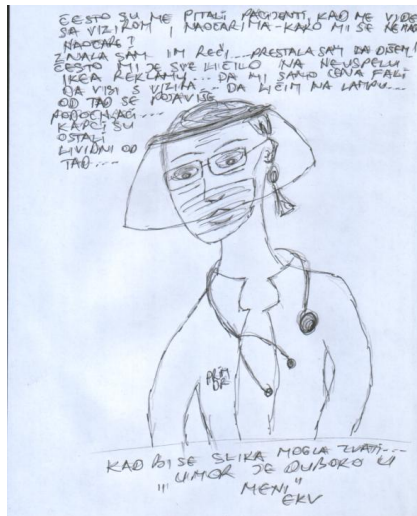 ČESTO SU ME PITALI PACIJENTI, KAD ME VIDE
SA VIZIROM I NAOČARIMA - KAKO MI SE NE MAGLE
NAOČARE?
ZNALA SAM IM REĆI... PRESTALA SAM DA DIŠEM!
ČESTO MI JE SVE LIČILO NA NEUSPELU
IKEA REKLAMU... DA MI SAMO CENA FALI
DA VISI S VIZIRA - DA LIČIM NA LAMPU...
OD TAD SE POJAVIŠE
PODOČNJACI...
KAPCI SU
OSTALI
LIVIDNI OD
TAD...
PRIM
DR
KAD BI SE SLIKA MOGLA ZVATI...
"UMOR JE DUBOKO U
MENI"
EKV